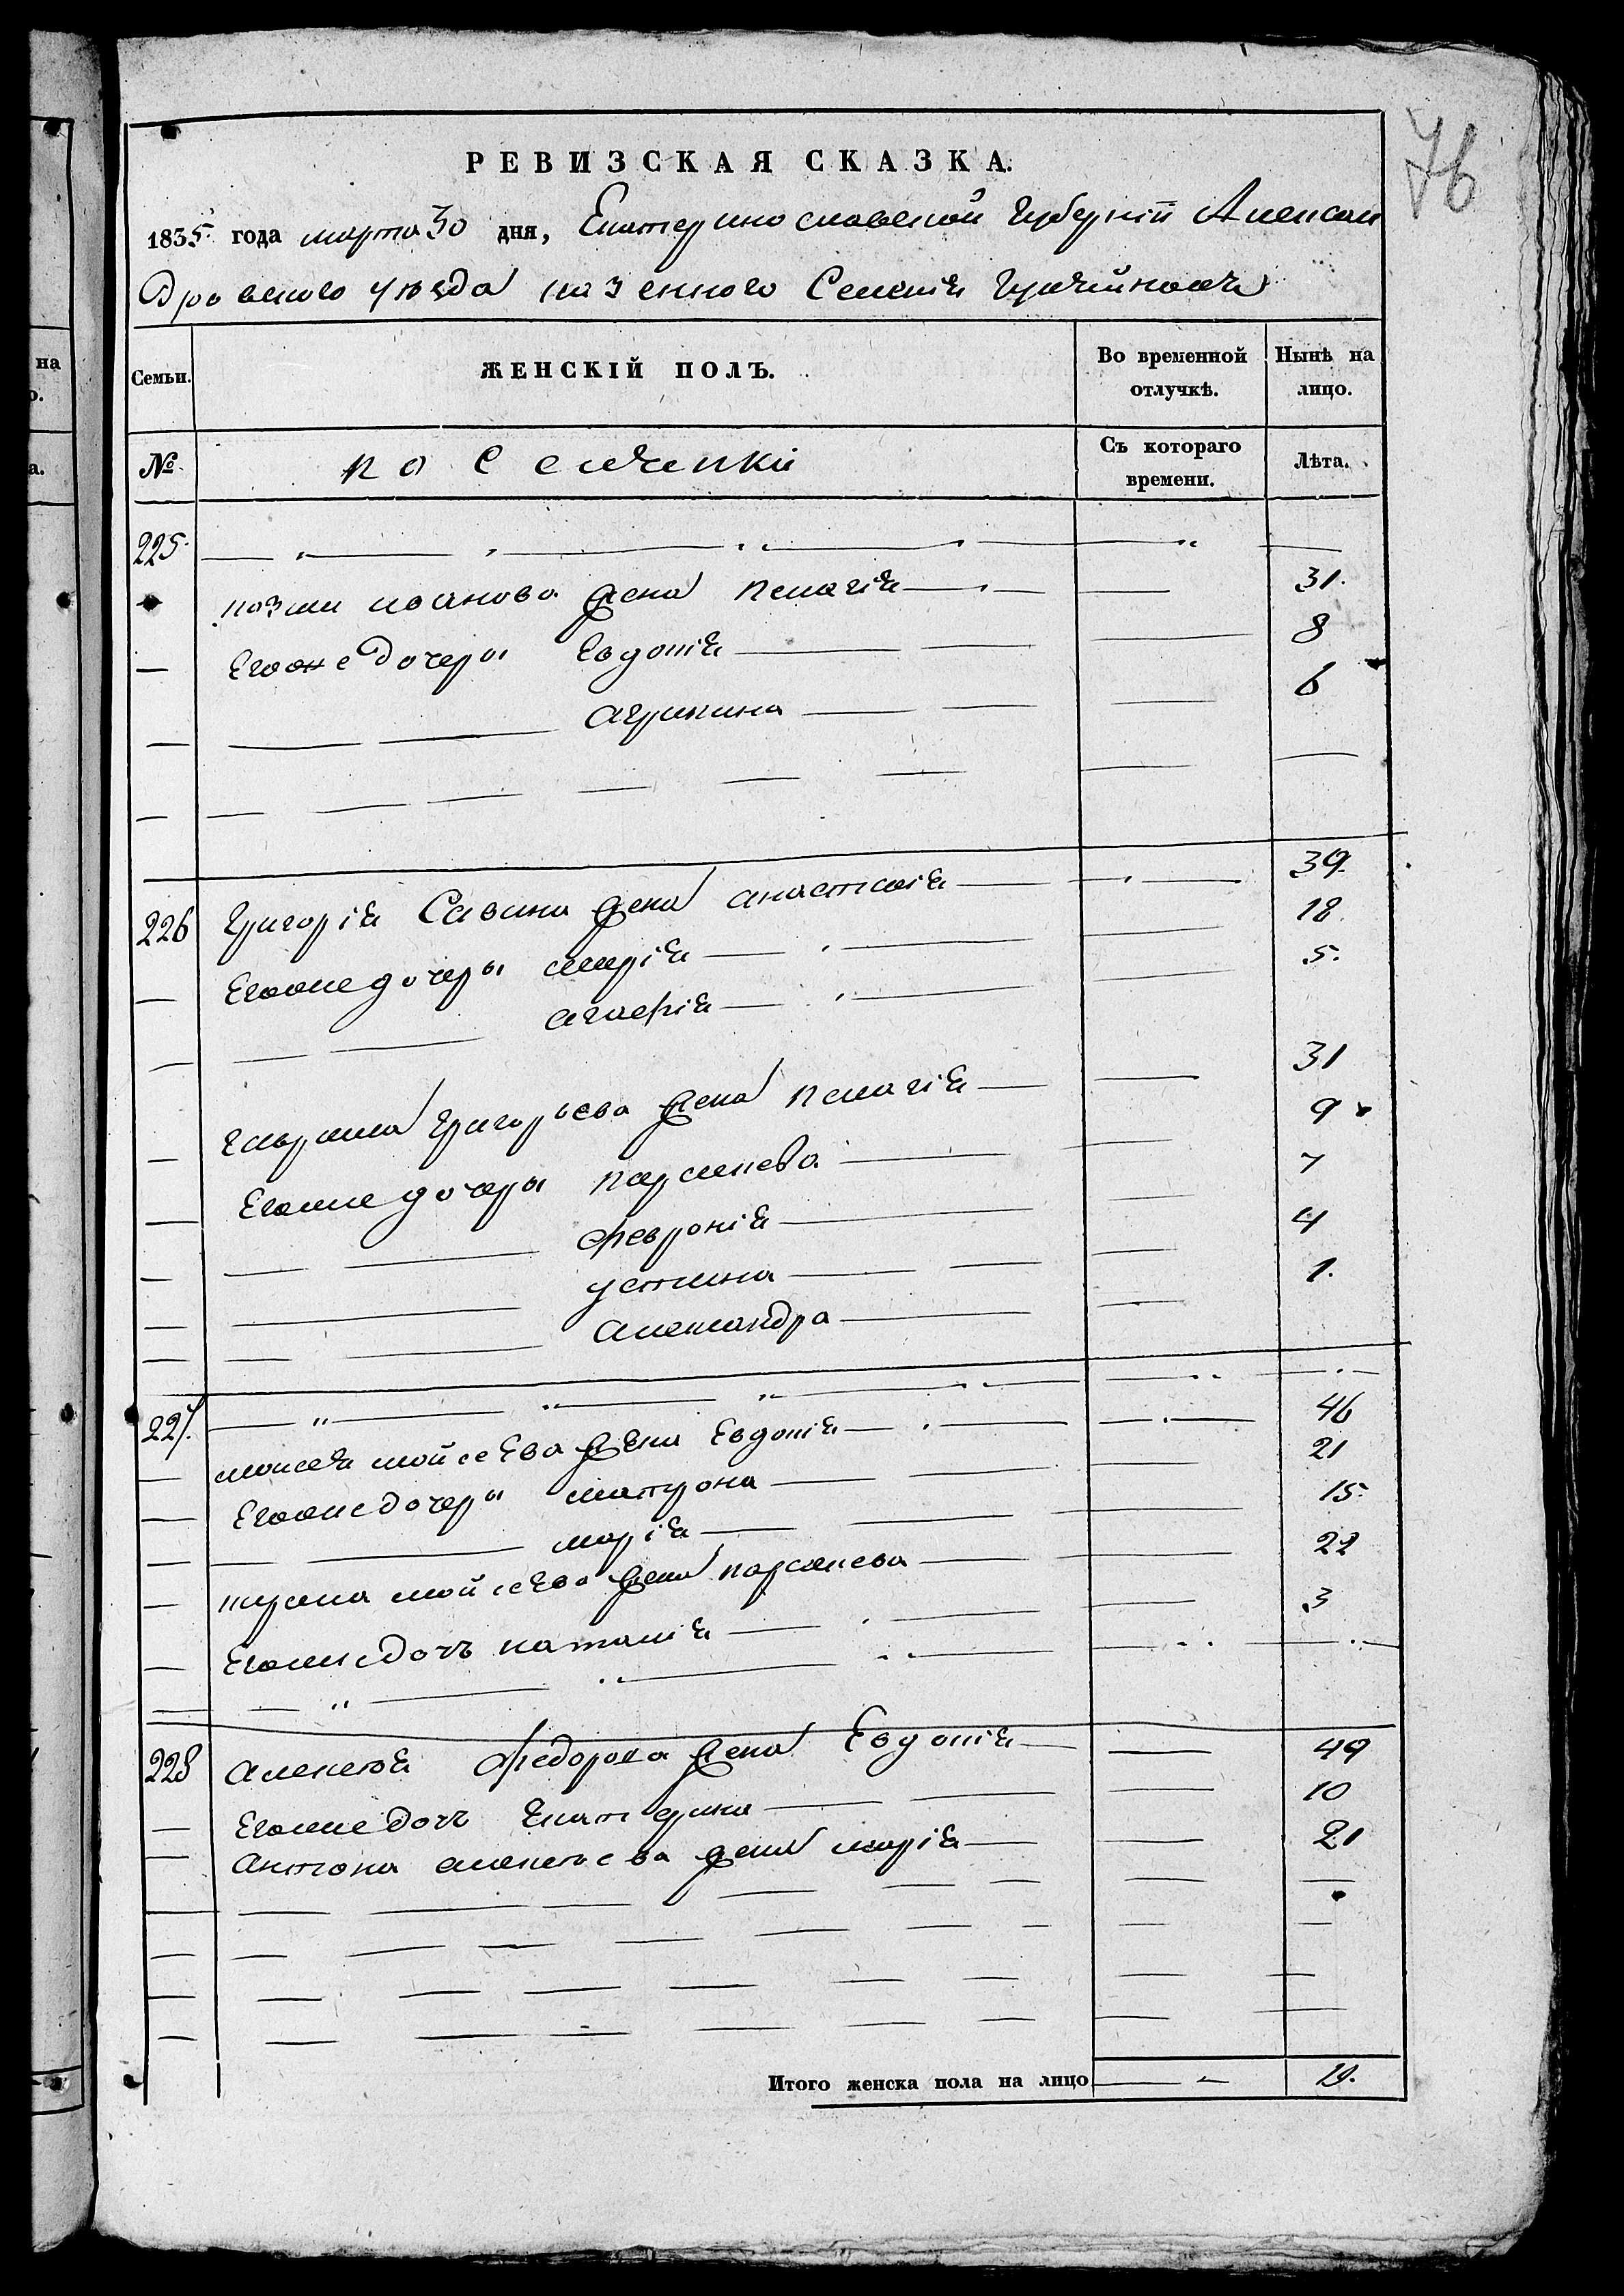 76
РЕВИЗСКАЯ СКАЗКА.
1835 года марта 30 дня, Екатеринославской губерніи Алексан
дровского уезда казенного Селенія
Семьи. ЖЕНСКІЙ ПОЛЪ. Во временной отлучкѣ. Нынѣ на лицо.
№ Съ котораго времени. Лѣта.
225
козми иванова жена пелагія 31.
Егоже дочеры Евдокія 8
агрипина 6
226 Григорія Савина жена анастасія 39.
Егоже дочеры марія 18.
агафія 5.
гаврила григорьева жена пелагія 31
Егоже дочеры парскева 9
февронія 7
устина 4
александра 1.
227.
моисея мойсеева жена Евдокія 46
Егоже дочеры матрона 21
марія 15.
мойсеева жена параскева 22
Егоже дочъ наталія 3
228 алексея федорова жена Евдокія 49
Егоже дочъ Екатерина 10
антона алексеева жена марія 21
Итого женска пола на лицо 19.
на
о.
а.